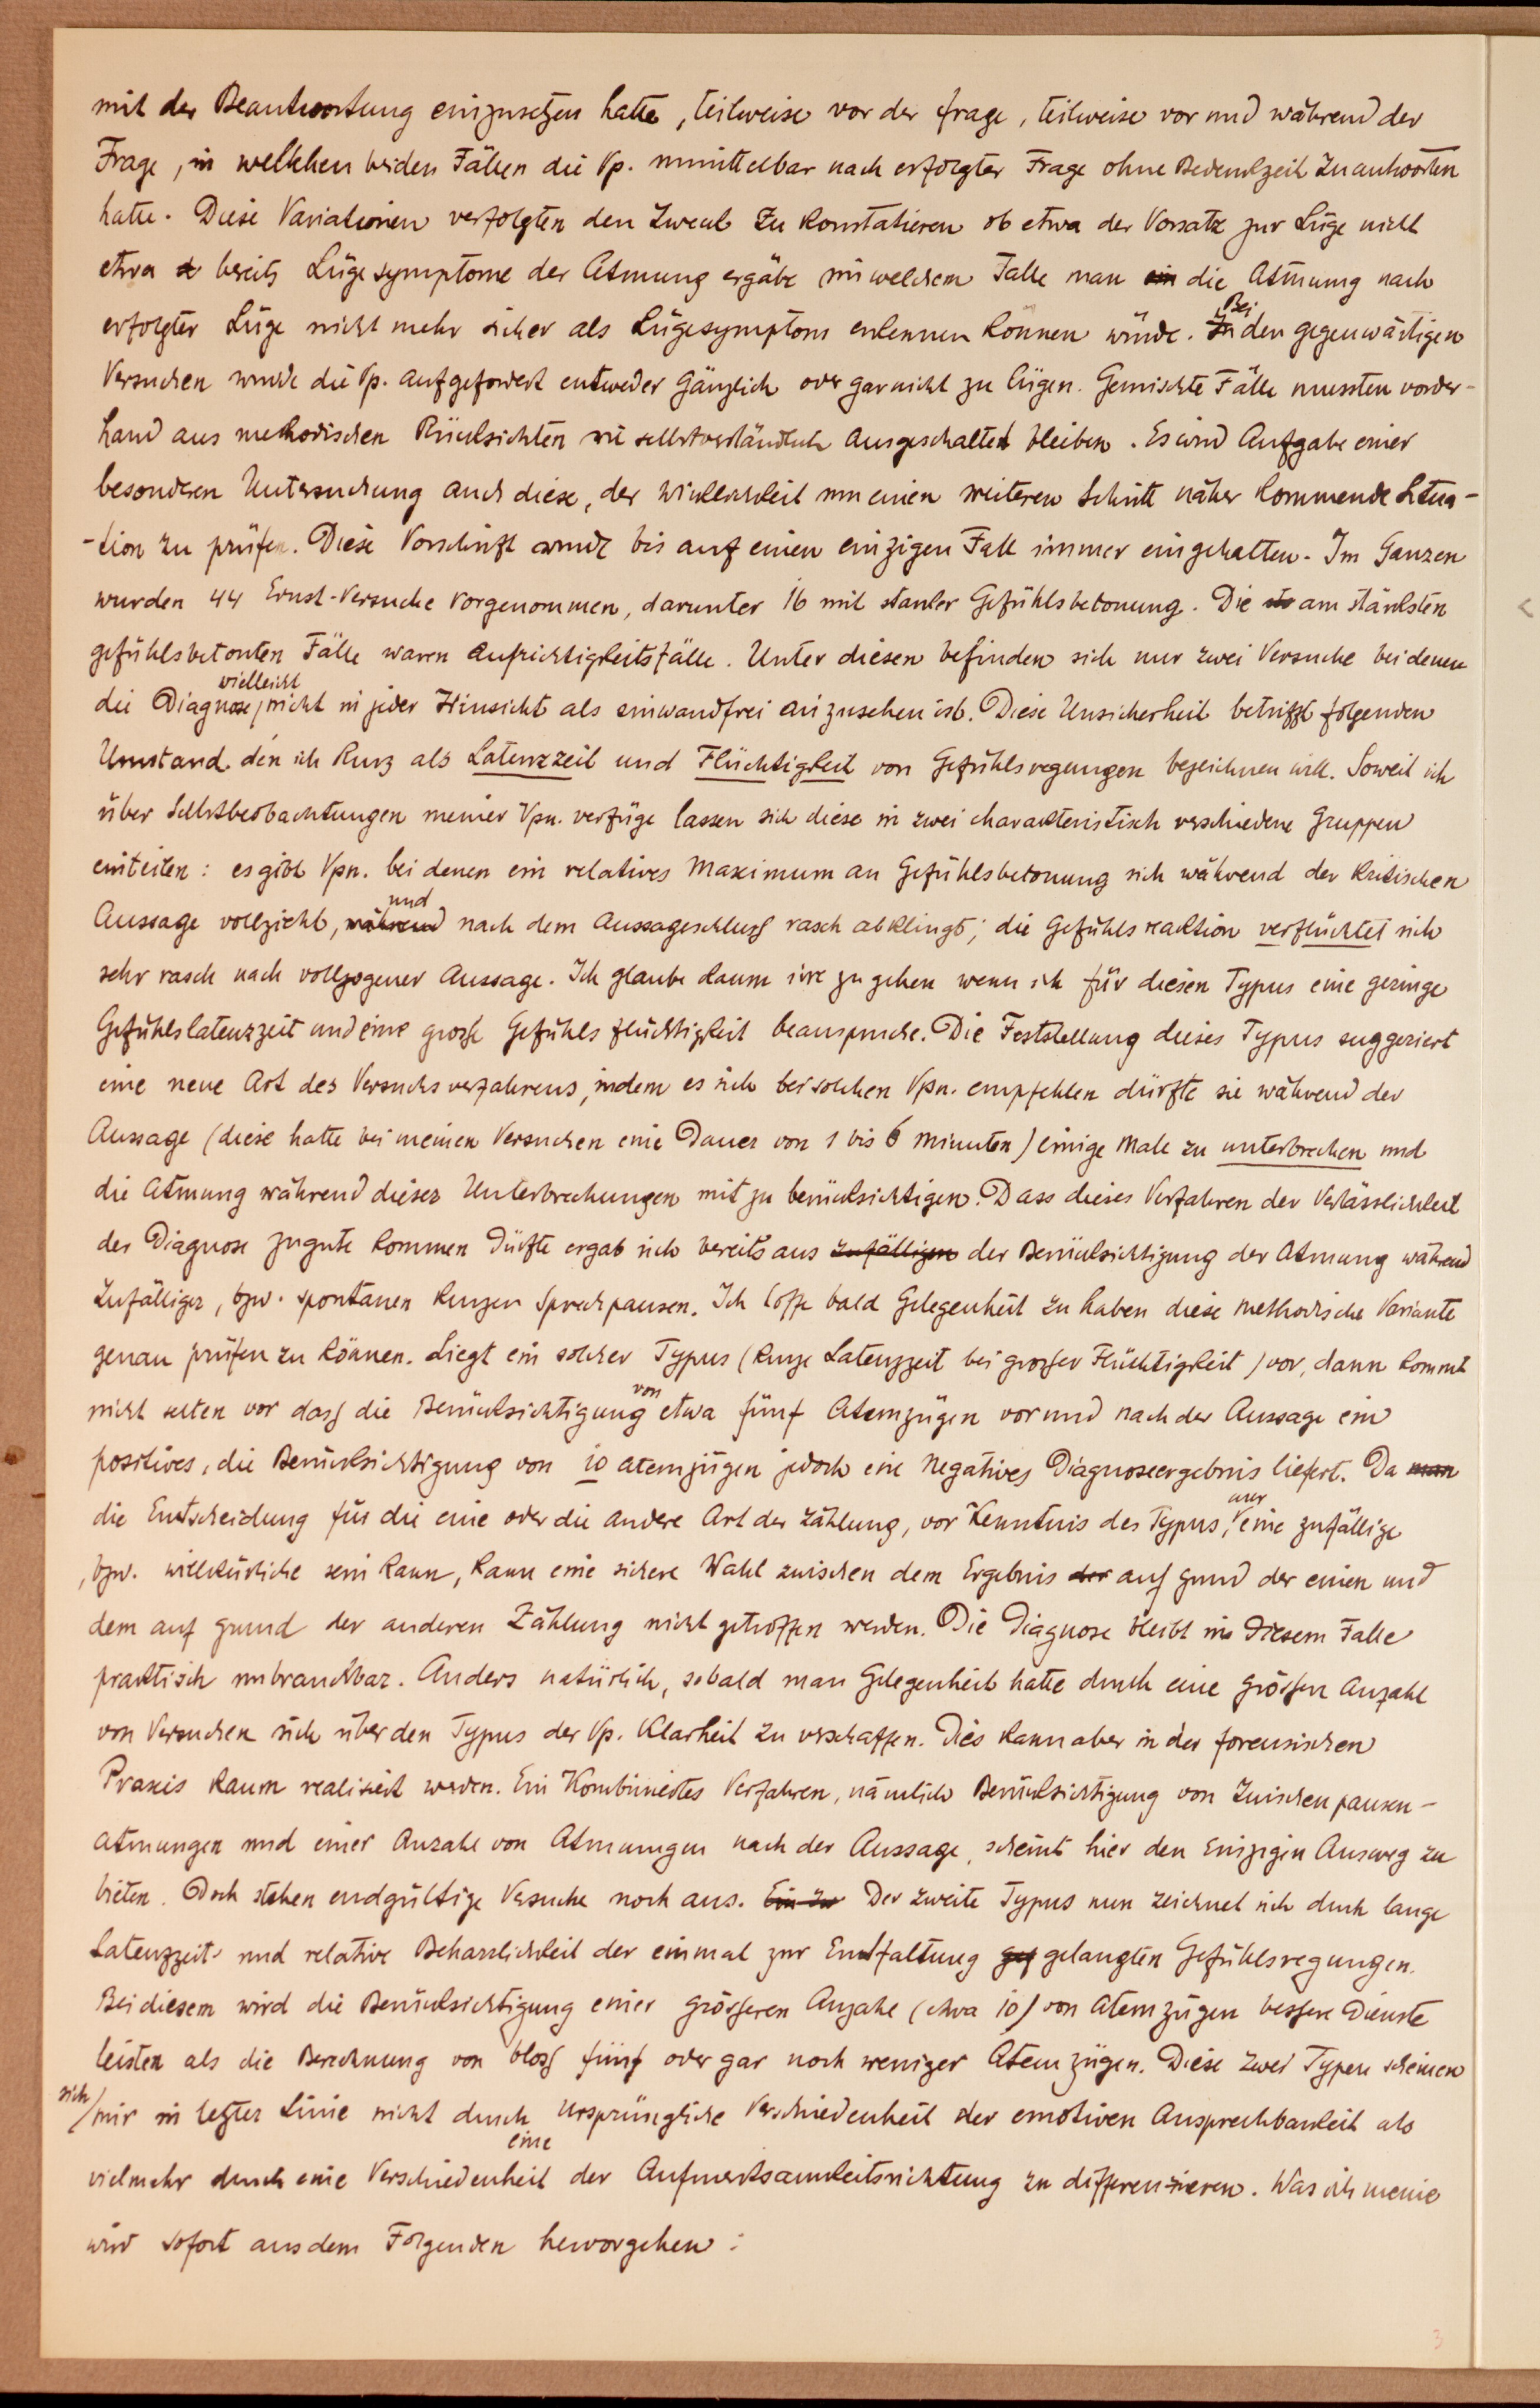 mit der Beantwortung einzusetzen hatte, teilweise vor der Frage, teilweise vor und während der
Frage, in welchen beiden Fällen die Vp. unmittelbar nach erfolgter Frage ohne Bedenkzeit zu antworten
hatte. Diese Variationen verfolgten den Zweck zu konstatieren ob etwa der Vorsatz zur Lüge nicht
etwa bereits Lügesymptome der Atmung ergäbe in welchem Falle man ein die Atmung nach
erfolgter Lüge nicht mehr sicher als Lügesymptom erkennen können würde. In Bei den gegenwärtigen
Versuchen wurde die Vp. aufgefordert entweder gänzlich oder gar nicht zu lügen. Gemischte Fälle mussten vorder-
hand aus methodischen Rücksichten wie selbstverständlich ausgeschaltet bleiben. Es wird Aufgabe einer
besonderen Untersuchung auch diese, der Wirklichkeit um einen weiteren Schritt näher kommende Situa-
-tion zu prüfen. Diese Vorschrift wurde bis auf einen einzigen Fall immer eingehalten. Im Ganzen
wurden 44 Ernst-Versuche vorgenommen, darunter 16 mit starker Gefühlsbetonung. Die am stärksten
gefühlsbetonten Fälle waren Aufrichtigkeitsfälle. Unter diesen befinden sich nur zwei Versuche bei denen
die Diagnose vielleicht nicht in jeder Hinsicht als einwandfrei anzusehen ist. Diese Unsicherheit betrifft folgenden
Umstand den ich kurz als Latenzzeit und Flüchtigkeit von Gefühlsregungen bezeichnen will. Soweit ich
über Selbstbeobachtungen meiner Vpn. verfüge lassen sich diese in zwei charakteristisch verschiedene Gruppen
einteilen: es gibt Vpn. bei denen ein relatives Maximum an Gefühlsbetonung sich während der kritischen
Aussage vollzieht, während und nach dem Aussageschluss rasch abklingt; die Gefühlsreaktion verflüchtet sich
sehr rasch nach vollzogener Aussage. Ich glaube kaum irre zu gehen wenn ich für diesen Typus eine geringe
Gefühlslatenzzeit und eine grosse Gefühlsflüchtigkeit beanspruche. Die Feststellung dieses Typus suggeriert
eine neue Art des Versuchsverfahrens, indem es sich bei solchen Vpn. empfehlen dürfte sie während der
Aussage (diese hatte bei meinen Versuchen eine Dauer von 1 bis 6 Minuten) einige Male zu unterbrechen und
die Atmung während dieser Unterbrechungen mit zu berücksichtigen. Dass dieses Verfahren der Verlässlichkeit
der Diagnose zugute kommen dürfte ergab sich bereits aus zufälligen der Berücksichtigung der Atmung während
zufälliger, bzw. spontanen kurzen Sprechpausen. Ich hoffe bald Gelegenheit zu haben diese methodische Variante
genau prüfen zu können. Liegt ein solcher Typus (kurze Latenzzeit bei grosser Flüchtigkeit) vor, dann kommt
nicht selten vor dass die Berücksichtigung von etwa fünf Atemzügen vor und nach der Aussage ein
positives, die Berücksichtigung von 10 Atemzügen jedoch ein negatives Diagnoseergebnis liefert. Da man
die Entscheidung für die eine oder die andere Art der Zählung, vor Kenntnis des Typus, nur eine zufällige
, bzw. willkürliche sein kann, kann eine sichere Wahl zwischen dem Ergebnis der auf grund der einen und
dem auf grund der anderen Zählung nicht getroffen werden. Die Diagnose bleibt in diesem Falle
praktisch unbrauchbar. Anders natürlich, sobald man Gelegenheit hatte durch eine grössere Anzahl
von Versuchen sich über den Typus der Vp. Klarheit zu verschaffen. Dies kann aber in der forensischen
Praxis kaum realisiert werden. Ein kombiniertes Verfahren, nämlich Berücksichtigung von Zwischenpausen-
atmungen und einer Anzahl von Atmungen nach der Aussage, scheint hier den einzigen Ausweg zu
bieten. Doch stehen endgültige Versuche noch aus. Ein zw Der zweite Typus nun zeichnet sich durch lange
Latenzzeit und relative Beharrlichkeit der einmal zur Entfaltung gelangten Gefühlsregungen.
Bei diesem wird die Berücksichtigung einer grösseren Anzahl (etwa 10) von Atemzügen bessere Dienste
leisten als die Berechnung von bloss fünf oder gar noch weniger Atemzügen. Diese zwei Typen scheinen
sich mir in letzter Linie nicht durch ursprüngliche Verschiedenheit der emotiven Ansprechbarkeit als
vielmehr durch eine eine Verschiedenheit der Aufmerksamkeitsrichtung zu differenzieren. Was ich meine
wird sofort aus dem Folgenden hervorgehen:
3